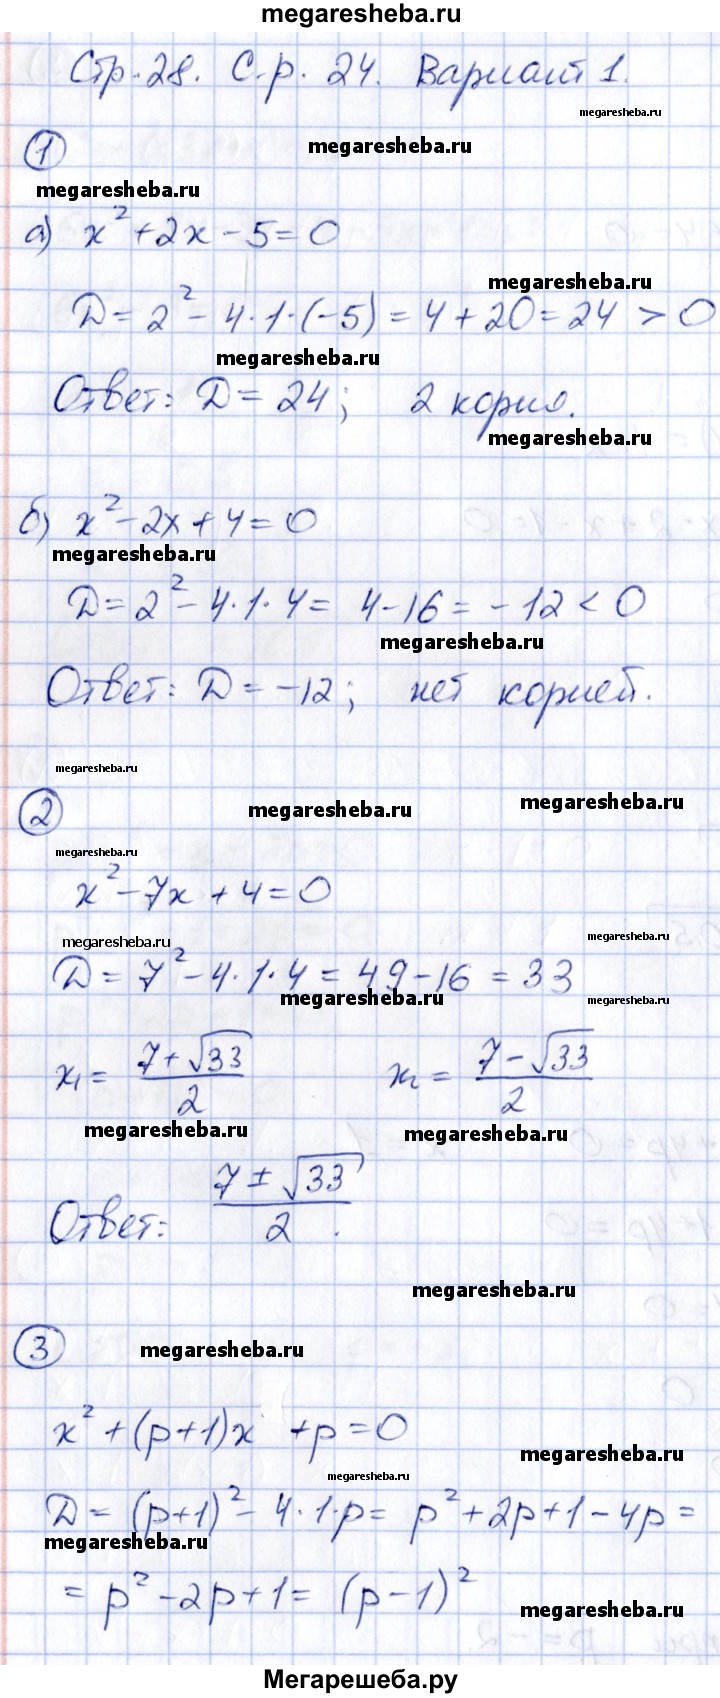 megaresheba.ru
Стр. 28. С.р. 24. Вариант 1.
megaresheba.ru
1
megaresheba.ru
megaresheba.ru
а) x² + 2x - 5 = 0
megaresheba.ru
Д = 2² - 4·1·(-5) = 4 + 20 = 24 > 0
megaresheba.ru
Ответ: Д = 24; 2 корня.
megaresheba.ru
б) x² - 2x + 4 = 0
megaresheba.ru
Д = 2² - 4·1·4 = 4 - 16 = -12 < 0
megaresheba.ru
Ответ: Д = -12; нет корней.
megaresheba.ru
2
megaresheba.ru
megaresheba.ru
megaresheba.ru
x² - 7x + 4 = 0
megaresheba.ru
megaresheba.ru
Д = 7² - 4·1·4 = 49 - 16 = 33
megaresheba.ru
megaresheba.ru
x₁ = (7 + √33)/2 x₂ = (7 - √33)/2
megaresheba.ru
megaresheba.ru
Ответ: (7 ± √33)/2.
megaresheba.ru
3
megaresheba.ru
x² + (p+1)x + p = 0
megaresheba.ru
megaresheba.ru
Д = (p+1)² - 4·1·p = p² + 2p + 1 - 4p =
megaresheba.ru
= p² - 2p + 1 = (p-1)²
megaresheba.ru
Мегарешеба.ру